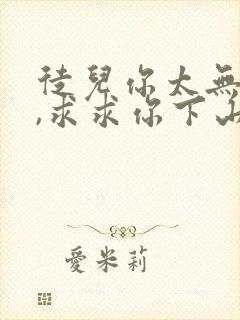 徒兒你太無
,求求你下山
愛米莉